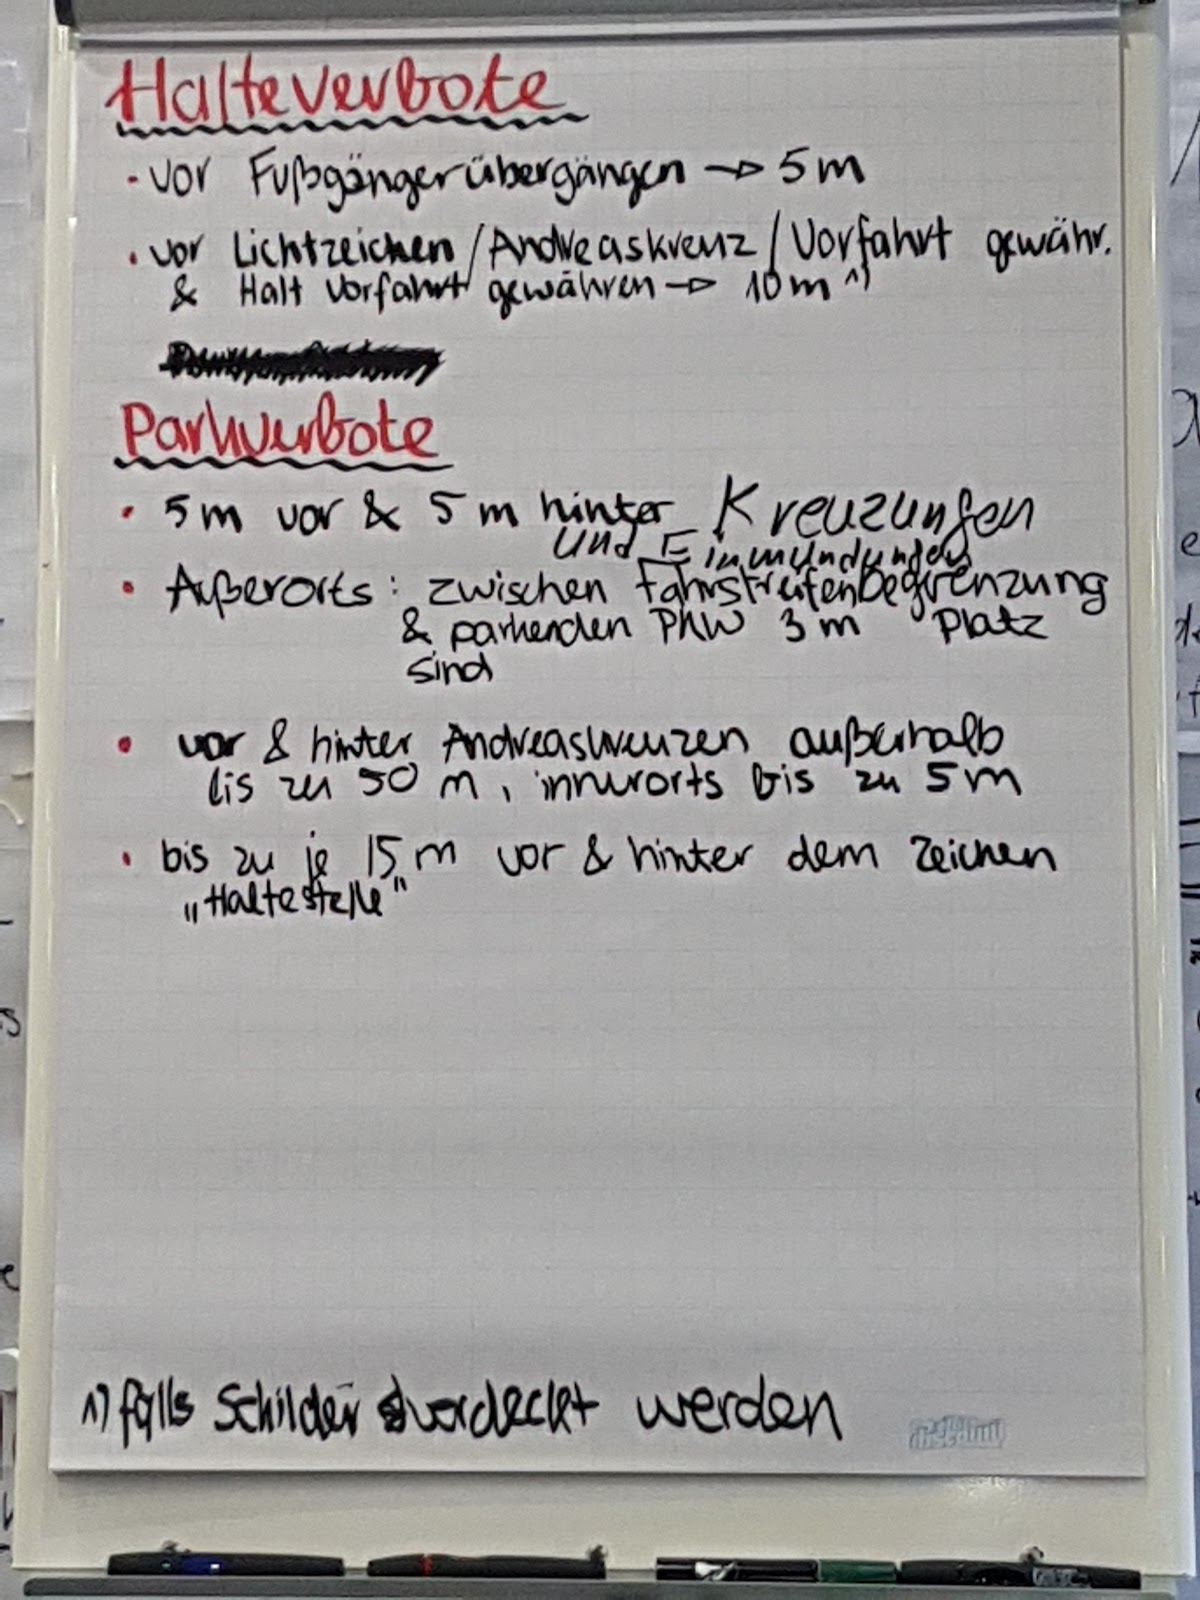 Halteverbote
- vor Fußgängerübergängen → 5 m
• vor Lichtzeichen / Andreaskreuz / Vorfahrt gewähr.
& Halt Vorfahrt gewähren → 10 m 1)
Parkverbote
• 5 m vor & 5 m hinter Kreuzungen
und Einmündungen
• Außerorts: zwischen Fahrstreifenbegrenzung
& parkenden PKW 3 m Platz
sind
• vor & hinter Andreaskreuzen außerhalb
bis zu 50 m, innerorts bis zu 5 m
• bis zu je 15 m vor & hinter dem Zeichen
„Haltestelle"
1) falls Schilder verdeckt werden